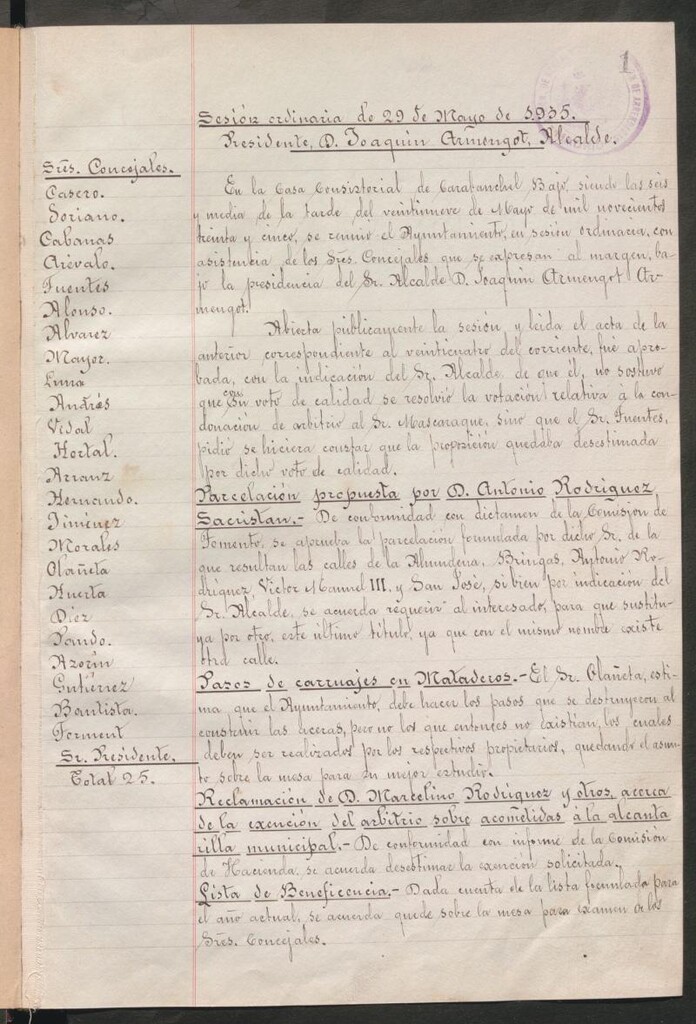 1
Sesión ordinaria de 29 de Mayo de 1935.
Presidente, D. Joaquín Armengot, Alcalde.
Sres. Concejales.
Casero.
Soriano.
Cabanas
Arévalo.
Fuentes
Alonso.
Alvarez
Mayor.
Luna
Andrés
Vidal
Hortal.
Arranz
Hernando.
Jiménez
Morales
Olañeta
Huerta
Díez
Pardo.
Azorín
Gutiérrez
Bautista.
Forment
Sr. Presidente.
Total 25.
En la Casa Consistorial de Carabanchel Bajo, siendo las seis
y media de la tarde del veintinueve de Mayo de mil novecientos
treinta y cinco, se reunió el Ayuntamiento, en sesión ordinaria, con
asistencia de los Sres. Concejales que se expresan al margen, ba-
jo la presidencia del Sr. Alcalde D. Joaquín Armengot Ar-
mengot.
Abierta públicamente la sesión y leída el acta de la
anterior correspondiente al veinticuatro del corriente, fué apro-
bada, con la indicación del Sr. Alcalde de que él, no sostuvo
que con su voto de calidad se resolvió la votación relativa á la con-
donación de arbitrio al Sr. Mascaraque, sino que el Sr. Fuentes,
pidió se hiciera constar que la proposición quedaba desestimada
por dicho voto de calidad.
Parcelación propuesta por D. Antonio Rodríguez
Sacristan.- De conformidad con dictamen de la Comisión de
Fomento, se aprueba la parcelación formulada por dicho Sr. de la
que resultan las calles de la Almudena, Bringas, Antonio Ro-
dríguez, Victor Manuel III, y San José, si bien por indicación del
Sr. Alcalde, se acuerda requerir al interesado, para que sustitu-
ya por otro, este último título, ya que con el mismo nombre existe
otra calle.
Pasos de carruajes en Mataderos.- El Sr. Olañeta, esti-
ma que el Ayuntamiento, debe hacer los pasos que se destruyeron al
construir las aceras, pero no los que entonces no existían, los cuales
deben ser realizados por los respectivos propietarios, quedando el asun-
to sobre la mesa para su mejor estudio.
Reclamación de D. Marcelino Rodríguez y otros, acerca
de la exención del arbitrio sobre acometidas á la alcanta
rilla municipal.- De conformidad con informe de la Comisión
de Hacienda, se acuerda desestimar la exención solicitada.
Lista de Beneficencia.- Dada cuenta de la lista formulada para
el año actual, se acuerda quede sobre la mesa para examen de los
Sres. Concejales.